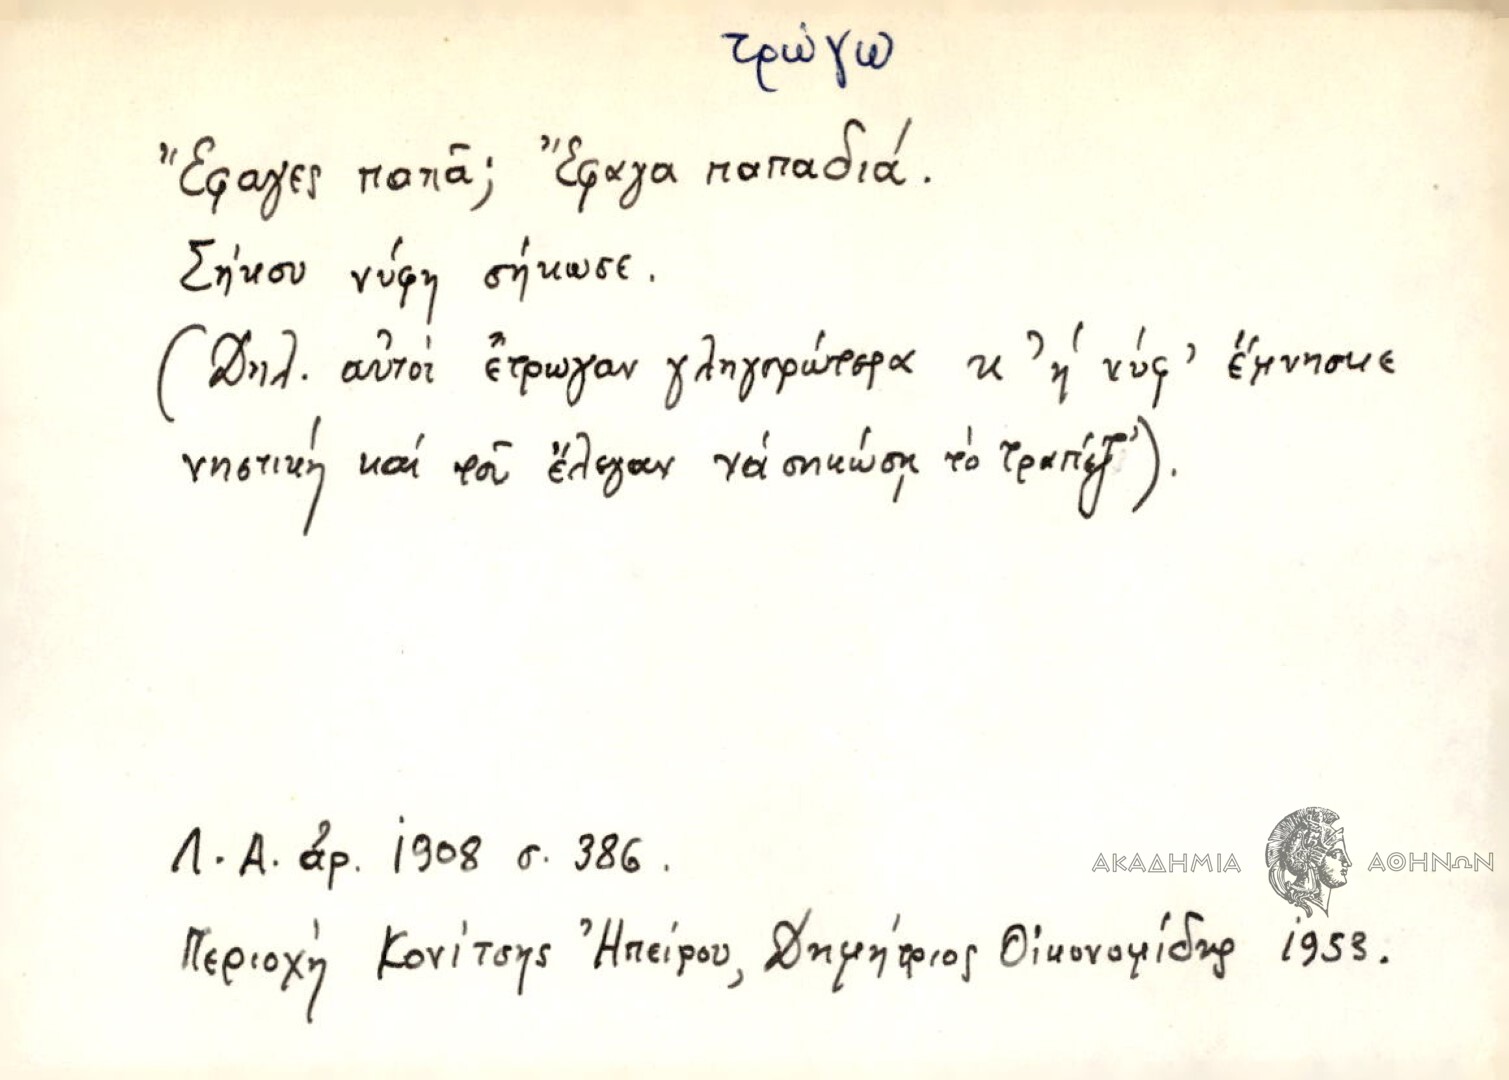 τρώγω
Ἔφαγες παπᾶ; Ἔφαγα παπαδιά.
Σήκου νύφη σήκωσε.
(Δηλ. αὐτοί ἔτρωγαν γληγορώτερα κ' ἡ νύφ' ἔμνησκε
νηστική καί τοῦ ἔλεγαν νά σηκώσῃ τό τραπέζ').
Λ. Α. ἀρ. 1908 σ. 386.
Περιοχή Κονίτσης Ἠπείρου, Δημήτριος Οἰκονομίδης 1953.
ΑΚΑΔΗΜΙΑ ΑΘΗΝΩΝ